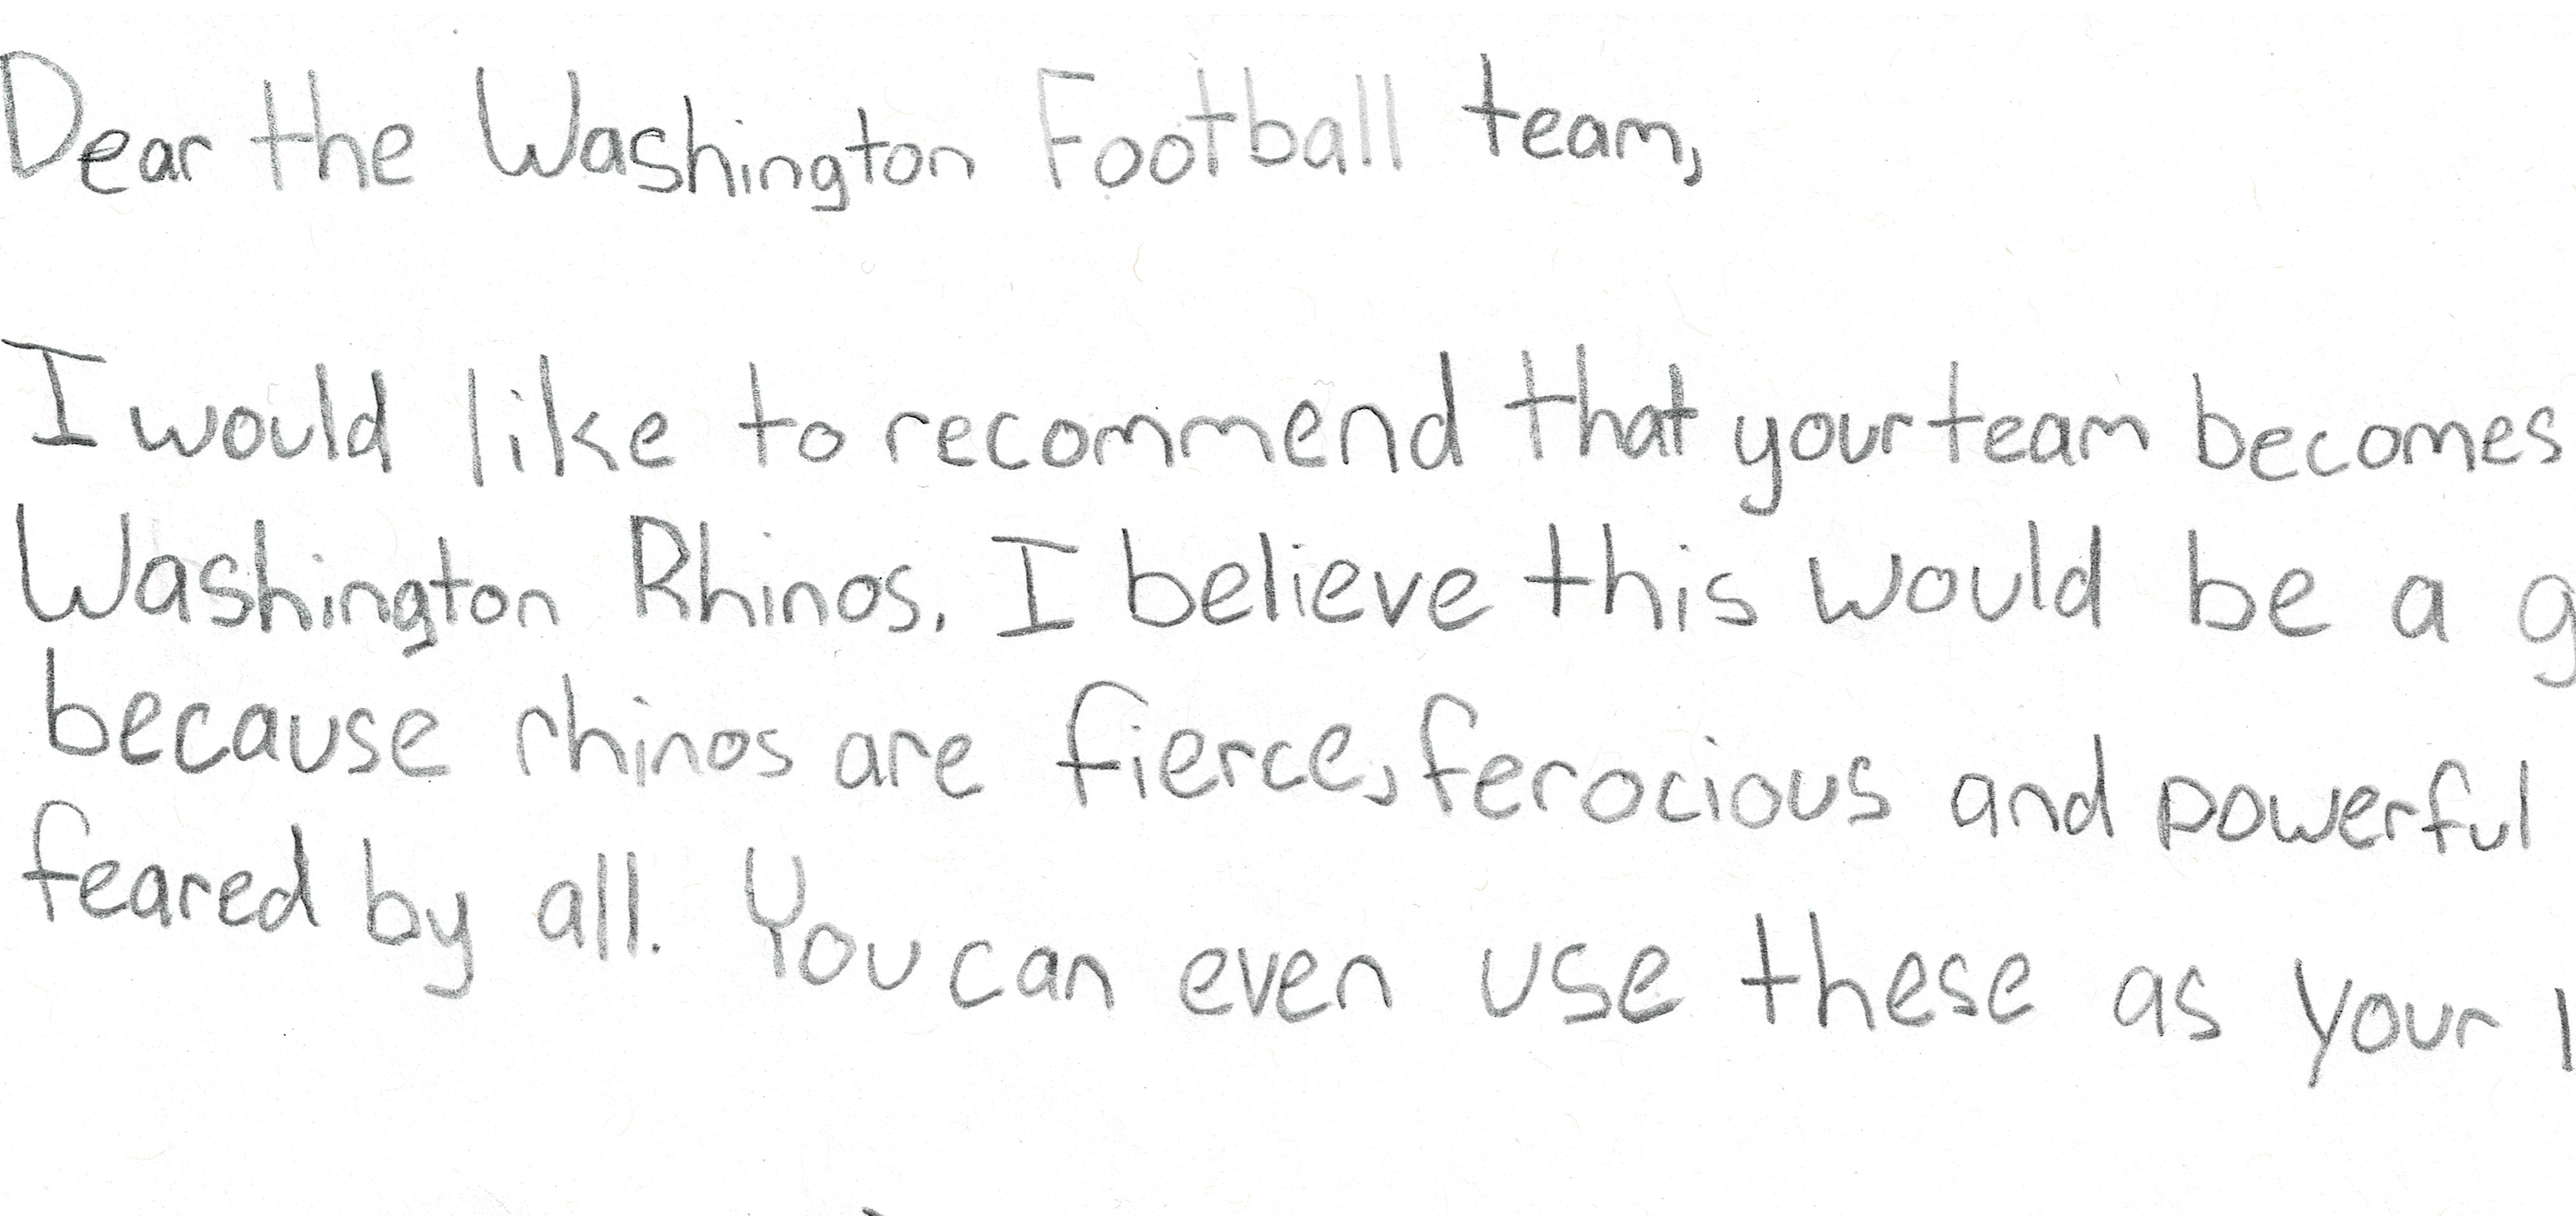 Dear the Washington Football team,
I would like to recommend that your team becomes
Washington Rhinos. I believe this would be a
because rhinos are fierce, ferocious and powerful
feared by all. You can even use these as your